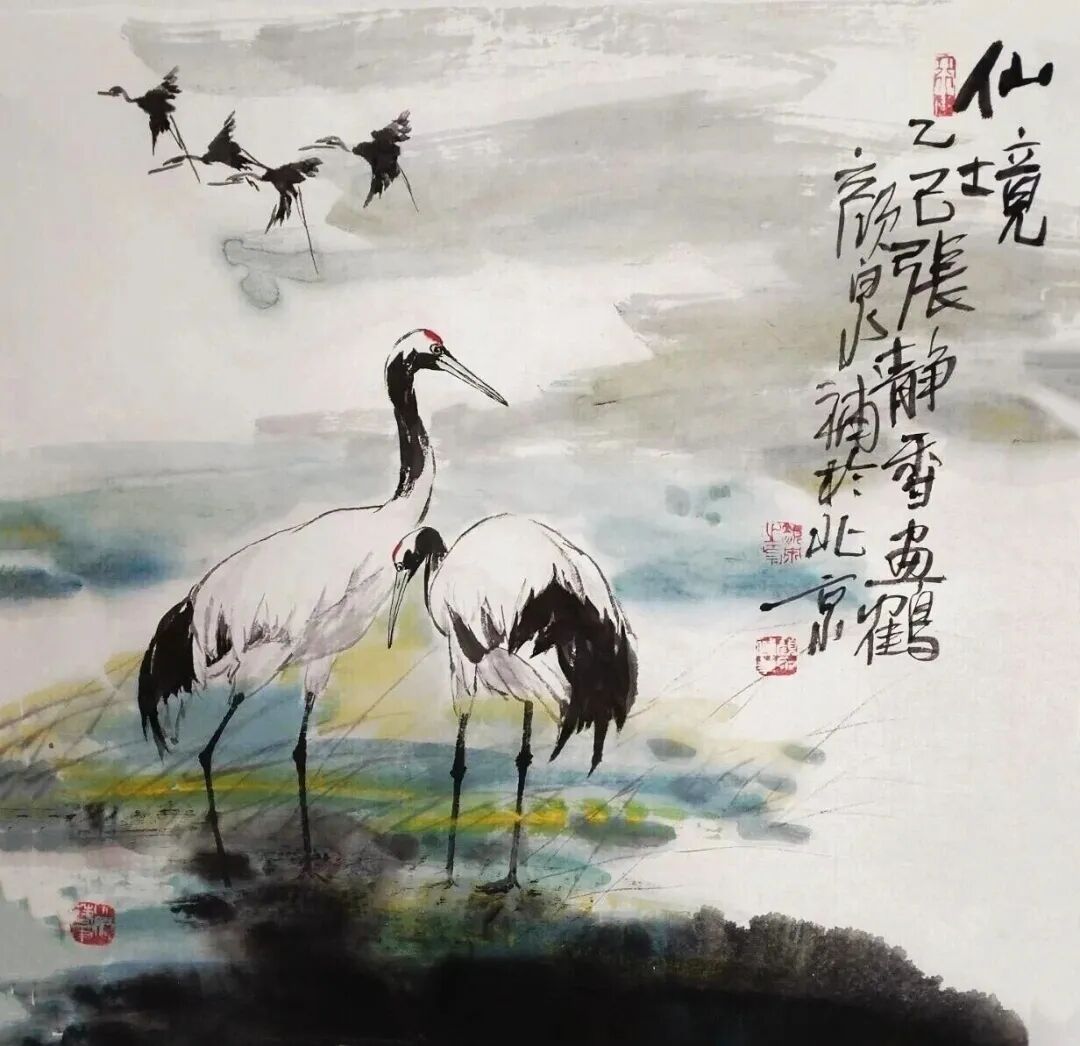 仙境
乙巳張静雪画鶴
顔泉補於北京